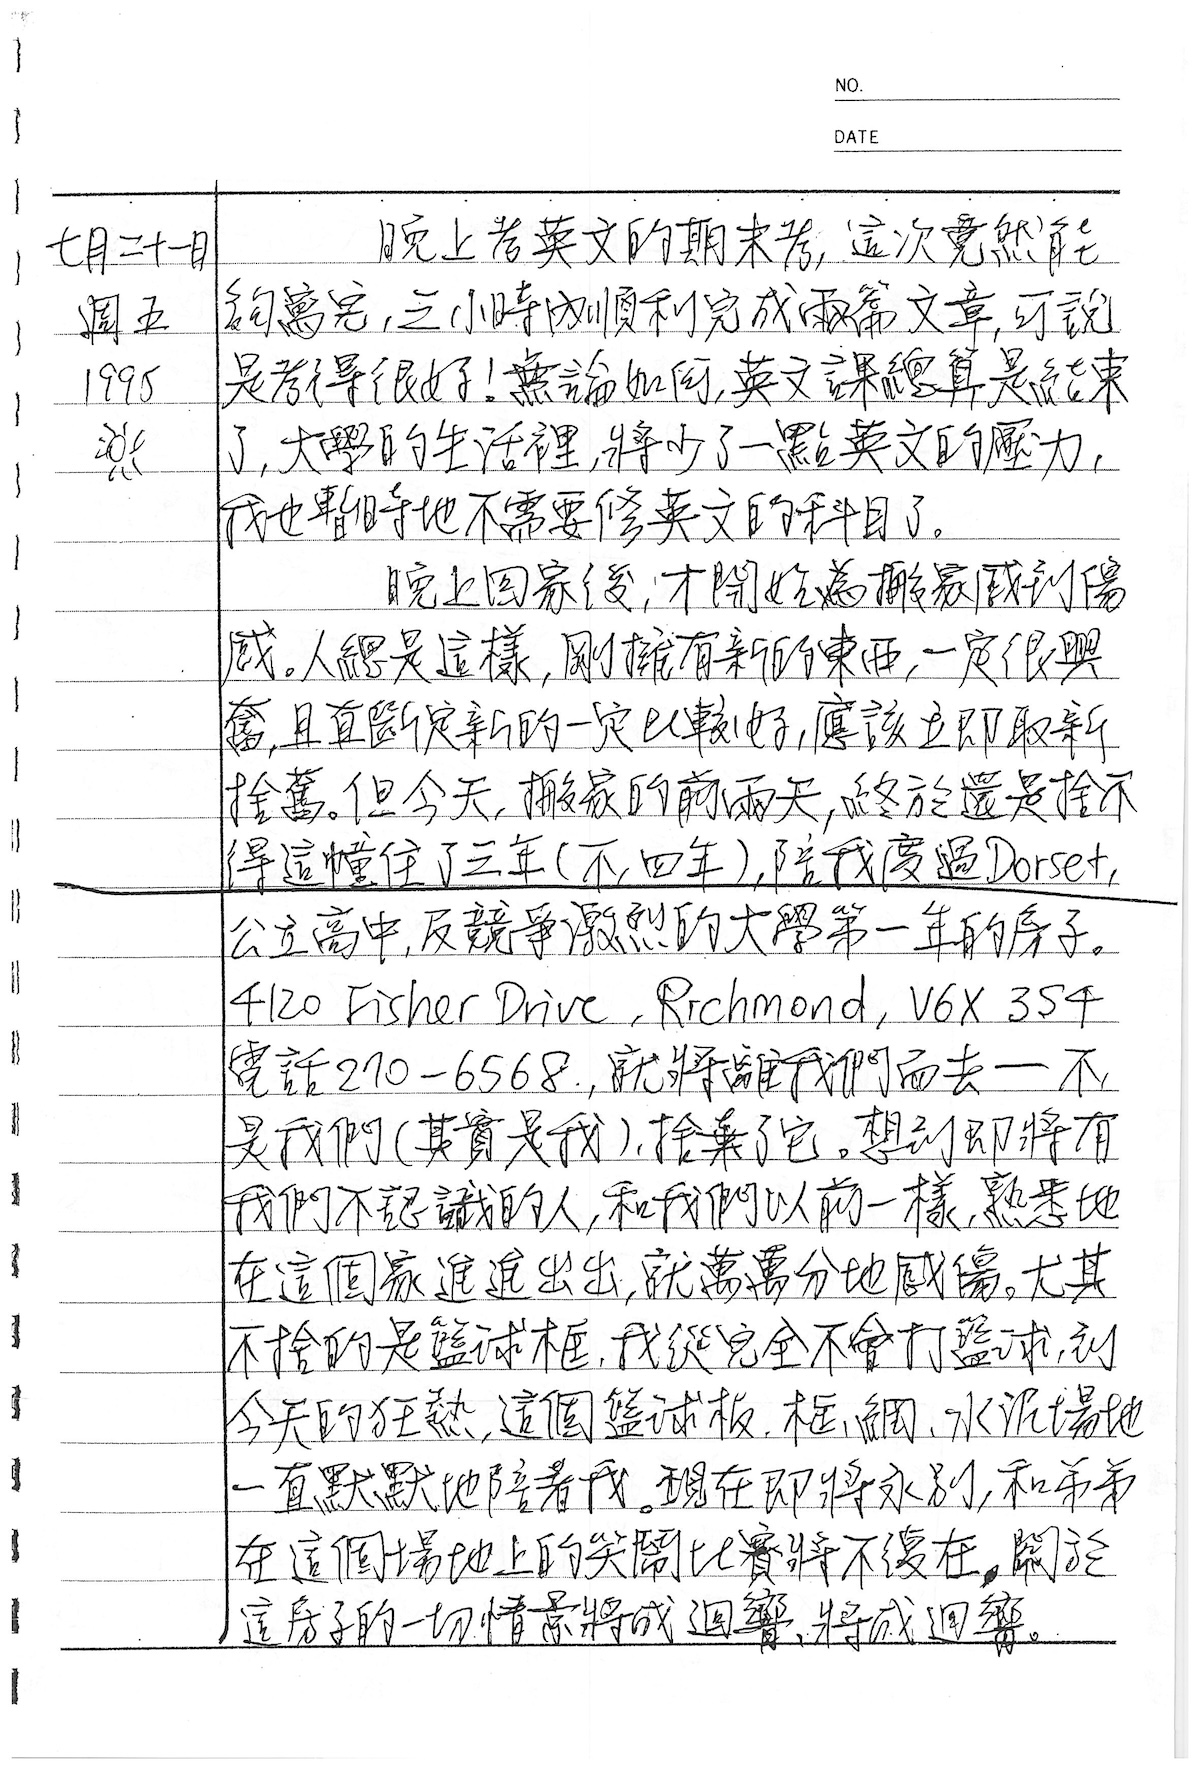 NO.
DATE
七月二十一日
週五
1995
晚上考英文的期末考,這次竟然能
夠寫完,三小時內順利完成兩篇文章,可說
是考得很好!無論如何,英文課總算是結束
了,大學的生活裡,將少了一點英文的壓力,
我也暫時地不需要修英文的科目了。
晚上回家後,才開始為搬家感到傷
感。人總是這樣,剛擁有新的東西,一定很興
奮,且直斷定新的一定比較好,應該立即取新
捨舊。但今天,搬家的前兩天,終於還是捨不
得這幢住了三年(不,四年),陪我度過Dorset,
公立高中,反競爭激烈的大學第一年的房子。
4120 Fisher Drive, Richmond, V6X 3S4
電話270-6568.,就將離我們而去一不,
是我們(其實是我),捨棄了它。想到即將有
我們不認識的人,和我們以前一樣,熟悉地
在這個家進進出出,就萬萬分地感傷。尤其
不捨的是籃球框,我從完全不會打籃球,到
今天的狂熱,這個籃球板、框、網、水泥場地
一直默默地陪著我。現在即將永別,和弟弟
在這個場地上的笑鬧比賽將不復在。關於
這房子的一切情景將成迴響,將成迴響。